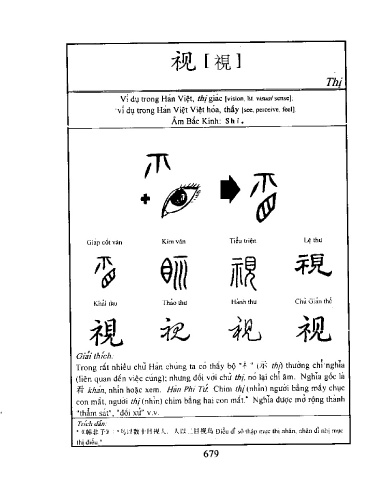 视 [ 視 ]
Thị
Ví dụ trong Hán Việt, thị giác [vision, lit. visual sense].
ví dụ trong Hán Việt Việt hóa, thấy [see, perceive, feel].
Âm Bắc Kinh: Shì.
Giáp cốt văn Kim văn Tiểu triện Lệ thư
視 視
Khải thư Thảo thư Hành thư Chữ Giản thể
視 视
Giải thích:
Trong rất nhiều chữ Hán chúng ta có thấy bộ "礻" (示 thị) thường chỉ nghĩa
(liên quan đến việc cúng); nhưng đối với chữ thị, nó lại chỉ âm. Nghĩa gốc là
看 khán, nhìn hoặc xem. Hàn Phi Tử. Chim thị (nhìn) người bằng mấy chục
con mắt, người thị (nhìn) chim bằng hai con mắt." Nghĩa được mở rộng thành
"thẩm sát", "đối xử" v.v.
Trích dẫn:
"《韩非子》: "鸟以数十目视人, 人以二目视鸟 Điểu dĩ số thập mục thị nhân, nhân dĩ nhị mục
thị điểu."
679